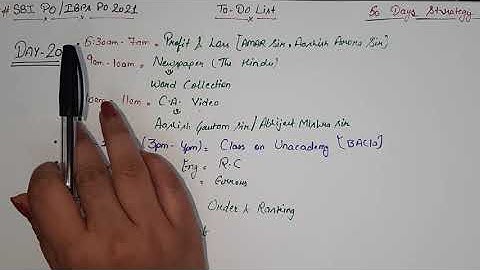 # SBI PO/IBPS PO 2021 To-Do List 50 Days Strategy
DAY-20 6:30am-7am = Profit & Loss [AMAR Sir, Aashish Arora Sir]
9am-10am = Newspaper (The Hindu)
Word Collection
11am = C.A. Video
Aashish Gautam Sir/Abhijeet Mishra Sir
(3pm-4pm) = Class on Unacademy
Eng = R.C
= Errors
Order & Ranking